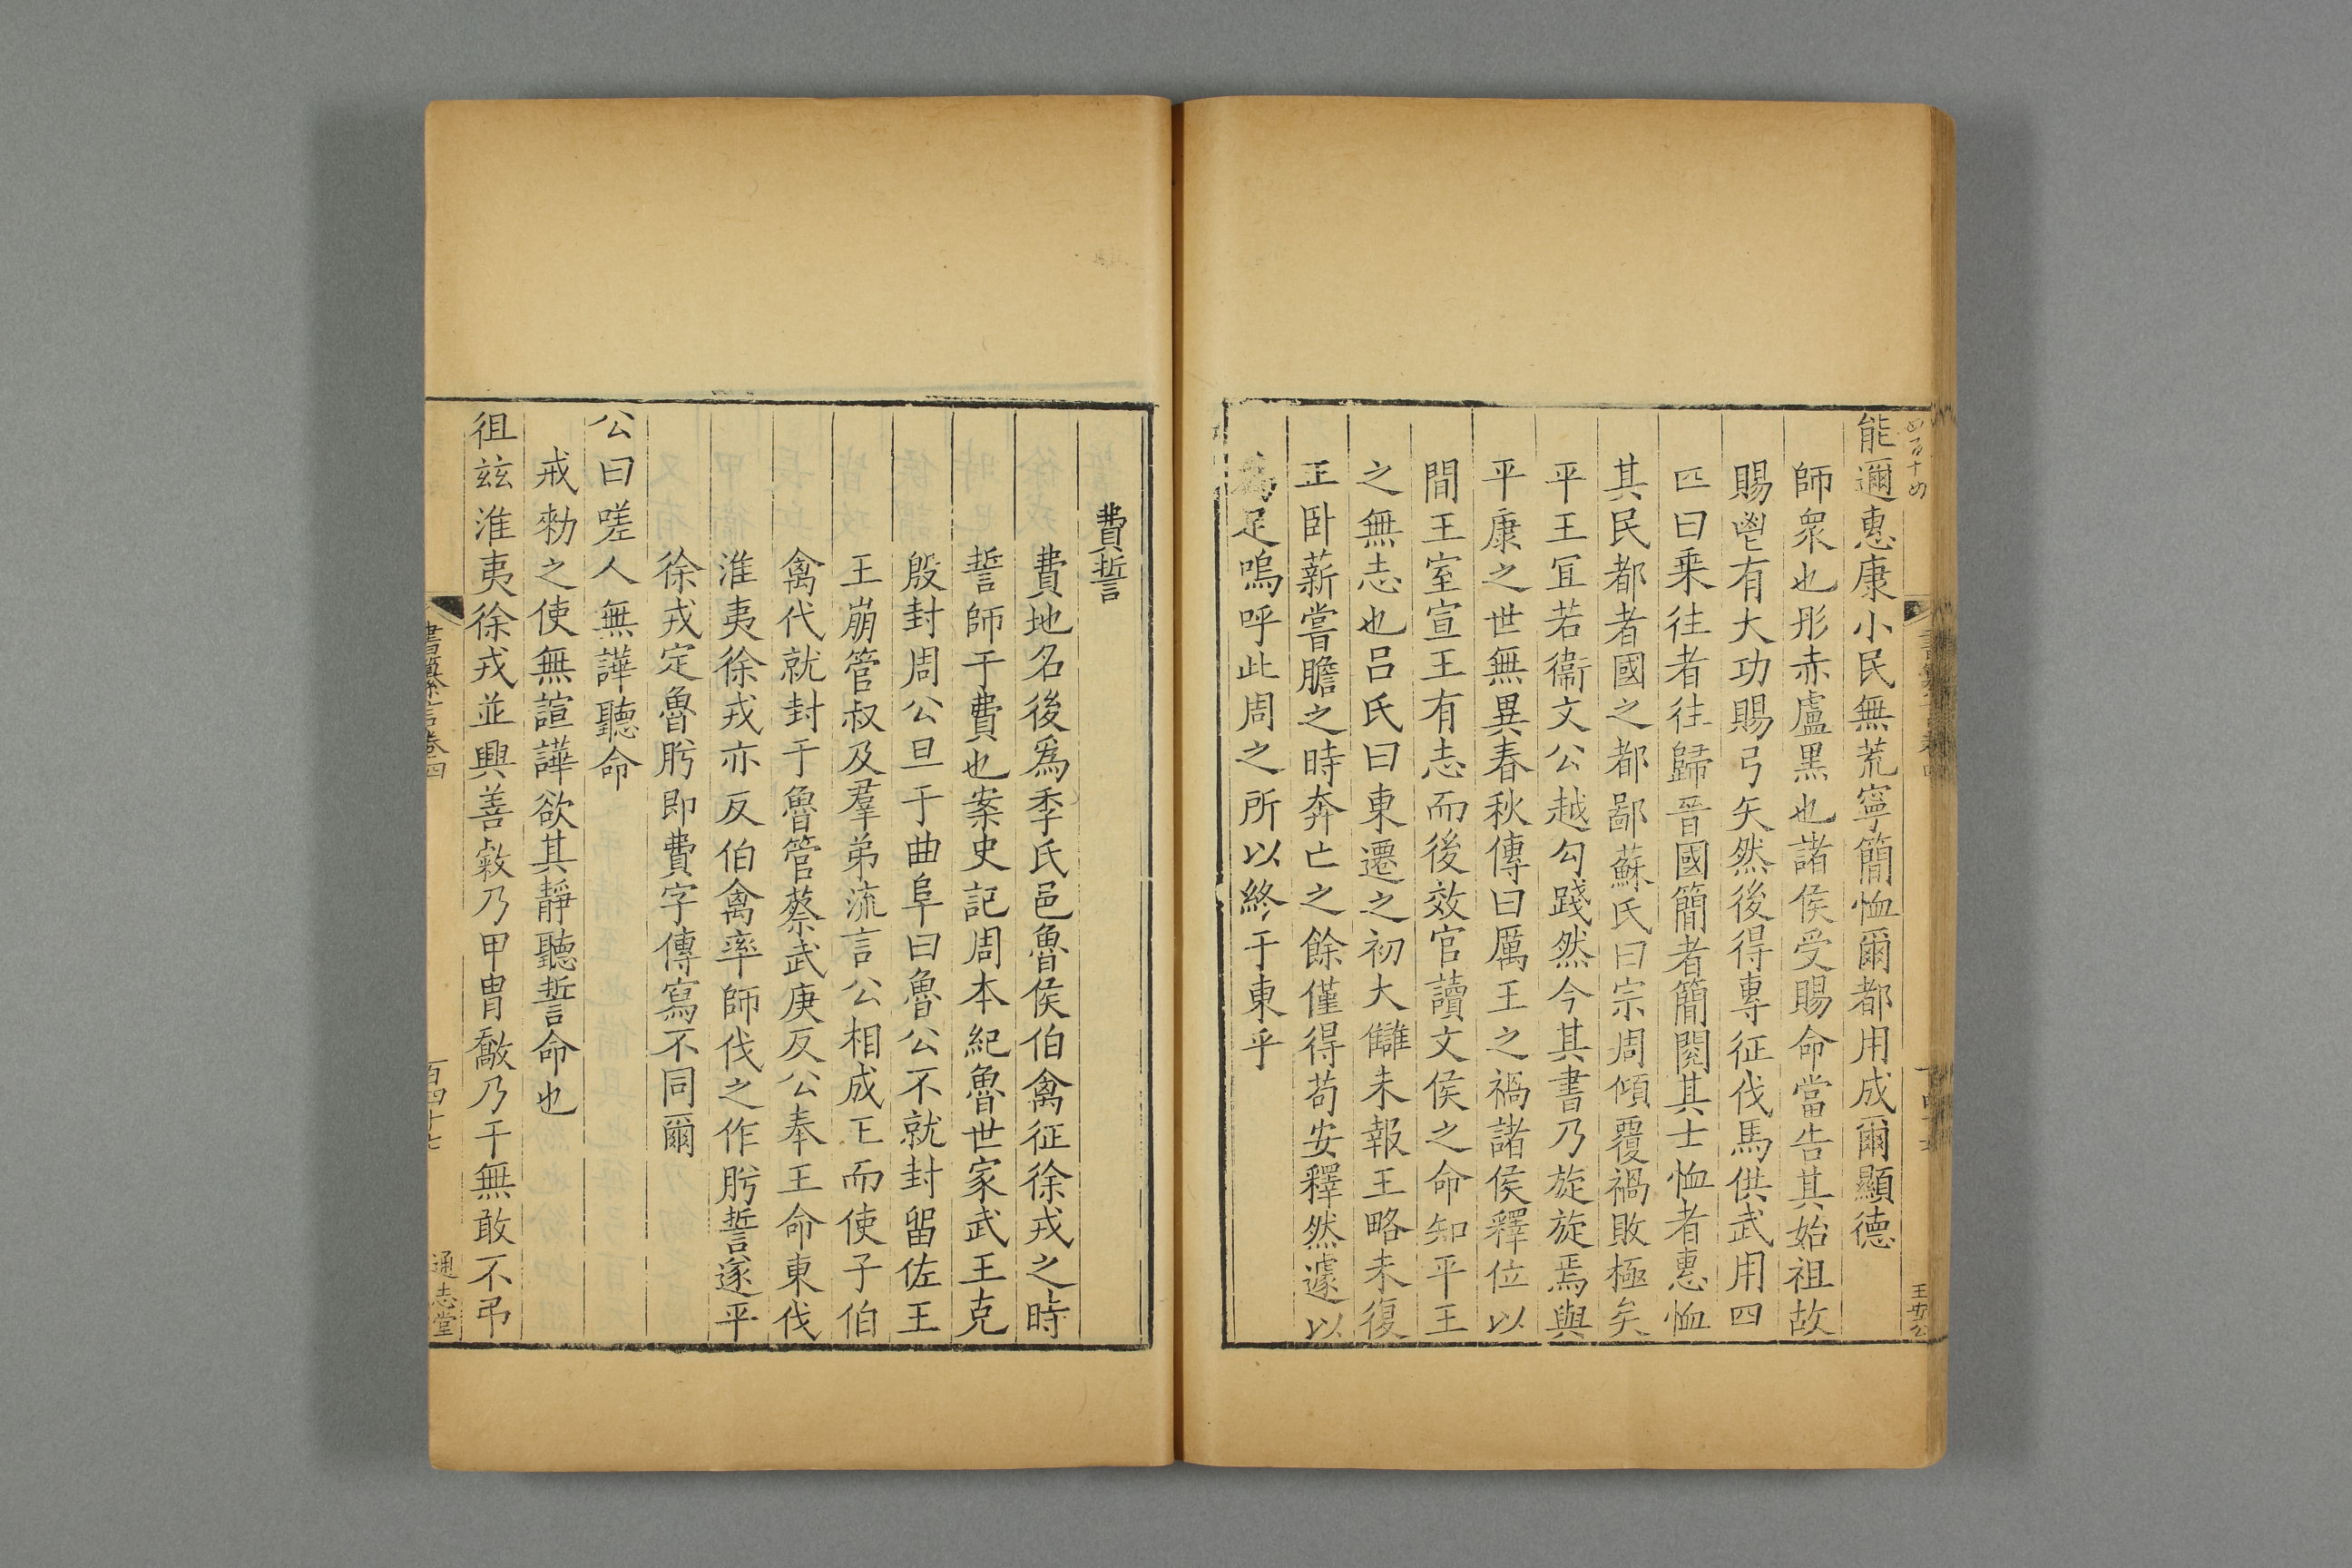 能邇惠康小民無荒寧簡恤爾都用成爾顯德
師衆也彤赤盧黑也諸侯受賜命當告其始祖故
賜鬯有大功賜弓矢然後得專征伐馬供武用四
匹曰乗往者往歸晉國簡者簡閱其士恤者惠恤
其民都者國之都鄙蘇氏曰宗周傾覆禍敗極矣
平王冝若衞文公越勾踐然今其書乃旋旋焉與
平康之世無異春秋傳曰厲王之禍諸侯釋位以
間王室宣王有志而後效官讀文侯之命知平王
之無志也吕氏曰東遷之初大讎未報王略未復
正卧薪嘗膽之時奔亡之餘僅得苟安釋然遽以
爲足嗚呼此周之所以終于東乎
費誓
費地名後爲季氏邑魯侯伯禽征徐戎之時
誓師于費也案史記周本紀魯世家武王克
殷封周公旦于曲阜曰魯公不就封留佐王
王崩管叔及羣弟流言公相成王而使子伯
禽代就封于魯管蔡武庚反公奉王命東伐
淮夷徐戎亦反伯禽率師伐之作肹誓遂平
徐戎定魯肹即費字傳寫不同爾
公曰嗟人無譁聽命
戒勑之使無諠譁欲其靜聽誓命也
徂兹淮夷徐戎並興善敹乃甲胄敿乃干無敢不弔
書纂言卷四
百四十七
通志堂